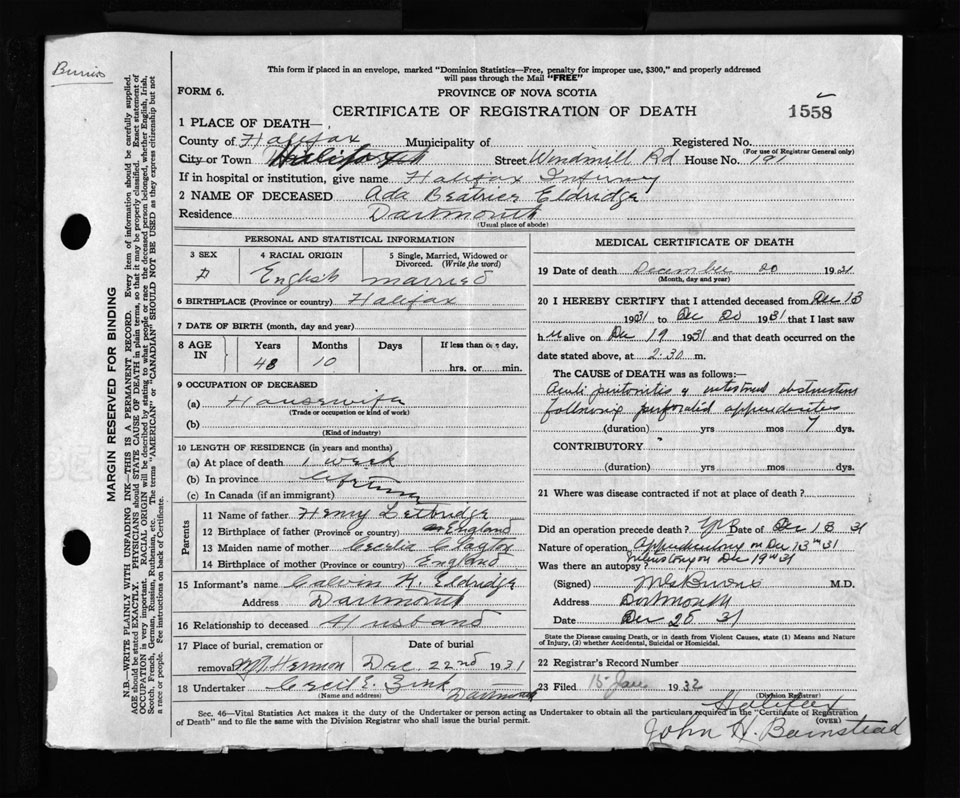 Burris
This form if placed in an envelope, marked "Dominion Statistics—Free, penalty for improper use, $300," and properly addressed
will pass through the Mail "FREE"
FORM 6.
PROVINCE OF NOVA SCOTIA
CERTIFICATE OF REGISTRATION OF DEATH
1558
1 PLACE OF DEATH—
County of Halifax Municipality of Registered No.
(For use of Registrar General only)
City or Town Halifax Street Windmill Rd House No. 191
If in hospital or institution, give name Halifax Infirmry
2 NAME OF DECEASED Ada Beatrice Eldridge
Residence Dartmouth
(Usual place of abode)
PERSONAL AND STATISTICAL INFORMATION
3 SEX
4 RACIAL ORIGIN English
5 Single, Married, Widowed or Divorced. (Write the word) married
6 BIRTHPLACE (Province or country) Halifax
7 DATE OF BIRTH (month, day and year)
8 AGE IN
Years Months Days If less than one day,
48 10 hrs. or min.
9 OCCUPATION OF DECEASED
(a) Housewife
(Trade or occupation or kind of work)
(b)
(Kind of industry)
10 LENGTH OF RESIDENCE (in years and months)
(a) At place of death 1 week
(b) In province lifetime
(c) In Canada (if an immigrant)
Parents
11 Name of father Henry Letbridge
12 Birthplace of father (Province or country) England
13 Maiden name of mother Cecelia Clayton
14 Birthplace of mother (Province or country) England
15 Informant's name Calvin H. Eldridge
Address Dartmouth
16 Relationship to deceased Husband
17 Place of burial, cremation or Date of burial
removal Mt. Hermon Dec. 22nd 1931
18 Undertaker Cecil E. Zink Dartmouth
(Name and address)
MEDICAL CERTIFICATE OF DEATH
19 Date of death December 20 1931
(Month, day and year)
20 I HEREBY CERTIFY that I attended deceased from Dec 13
1931 to Dec 20 1931 that I last saw
her alive on Dec 19 1931 and that death occurred on the
date stated above, at 2:30 m.
The CAUSE OF DEATH was as follows:—
Acute peritonitis & intestinal obstruction
following perforated appendicitis
(duration) yrs mos 7 dys.
CONTRIBUTORY
(duration) yrs mos dys.
21 Where was disease contracted if not at place of death?
Did an operation precede death? Yes Date of Dec 13 31
Nature of operation Appendectomy on Dec 13th 31
Was there an autopsy? on Dec 19th 31
(Signed) M.D.
Address Dartmouth
Date Dec 26 31
State the Disease causing Death, or in death from Violent Causes, state (1) Means and Nature
of Injury, (2) whether Accidental, Suicidal or Homicidal.
22 Registrar's Record Number
23 Filed 15 Jan 1932
(Division Registrar)
Halifax
John H. Barnstead
Sec. 46—Vital Statistics Act makes it the duty of the Undertaker or person acting as Undertaker to obtain all the particulars required in the "Certificate of Registration
of Death" and to file the same with the Division Registrar who shall issue the burial permit.
(OVER)
MARGIN RESERVED FOR BINDING
N.B.—WRITE PLAINLY WITH UNFADING INK—THIS IS A PERMANENT RECORD. Every item of information should be carefully supplied.
AGE should be stated EXACTLY. PHYSICIANS should STATE CAUSE OF DEATH in plain terms, so that it may be properly classified. Exact statement of
OCCUPATION is very important. RACIAL ORIGIN will be described by stating to what people or race the deceased person belonged, whether English, Irish,
Scotch, French, German, Russian, Ruthenian, etc. The terms "AMERICAN" or "CANADIAN" SHOULD NOT BE USED as they express citizenship but not
a race or people. Fee instructions on back of Certificate.